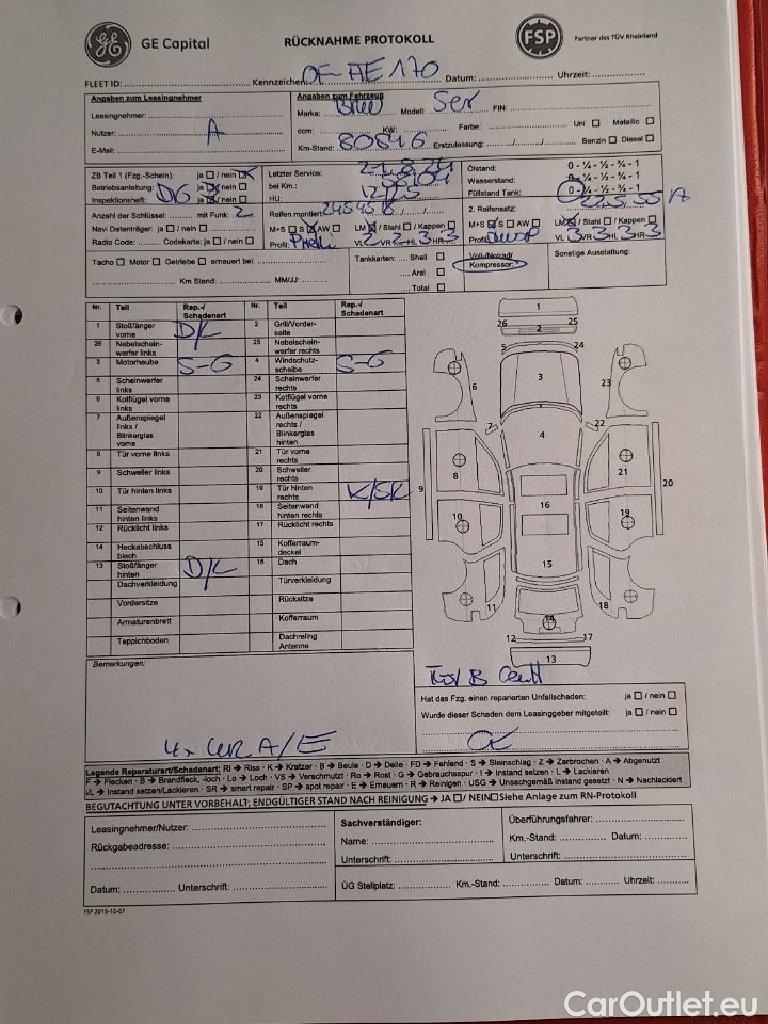 GE Capital
RÜCKNAHME PROTOKOLL
FSP
Partner des TÜV Rheinland
FLEET ID: Kennzeichen: OF-AE 170 Datum: Uhrzeit:
Angaben zum Leasingnehmer
Leasingnehmer:
Nutzer: A
E-Mail:
Angaben zum Fahrzeug
Marke: BMW Modell: 5er FIN:
ccm: KW: Farbe: Uni Metallic
Km-Stand: 80846 Erstzulassung: Benzin Diesel
ZB Teil 1 (Fzg.-Schein): ja / nein
Betriebsanleitung: ja / nein
Inspektionsheft: ja / nein
Letzter Service:
bei Km.:
HU: 12/25
Ölstand: 0 - ¼ - ½ - ¾ - 1
Wasserstand: 0 - ¼ - ½ - ¾ - 1
Füllstand Tank: 0 - ¼ - ½ - ¾ - 1
Anzahl der Schlüssel: mit Funk: 2
Navi Datenträger: ja / nein
Radio Code: Codekarte: ja / nein
Reifen montiert: 2454518
M+S S AW LM / Stahl / Kappen
Profil: VL 2 VR 2 HL 3 HR 3
2. Reifensatz:
M+S S AW LM / Stahl / Kappen
Profil: VL 3 VR 3 HL 3 HR 3
Tacho Motor Getriebe erneuert bei:
Km Stand: MM/JJ:
Tankkarten: Shell
Aral
Total
Voll-/Notrad/
Kompressor:
Sonstige Ausstattung:
Nr. Teil Rep.-/ Schadenart Nr. Teil Rep.-/ Schadenart
1 Stoßfänger vorne D/K 2 Grill/Vorder-seite
26 Nebelschein-werfer links 25 Nebelschein-werfer rechts
3 Motorhaube S-G 4 Windschutz-scheibe S-G
5 Scheinwerfer links 24 Scheinwerfer rechts
6 Kotflügel vorne links 23 Kotflügel vorne rechts
7 Außenspiegel links / Blinkerglas vorne 22 Außenspiegel rechts / Blinkerglas hinten
8 Tür vorne links 21 Tür vorne rechts
9 Schweller links 20 Schweller rechts
10 Tür hinten links 19 Tür hinten rechts K/SR
11 Seitenwand hinten links 18 Seitenwand hinten rechts
12 Rücklicht links 17 Rücklicht rechts
14 Heckabschluss blech 15 Kofferraum-deckel
13 Stoßfänger hinten D/K 16 Dach
Dachverkleidung Türverkleidung
Vordersitze Rücksitze
Armaturenbrett Kofferraum
Teppichboden Dachreling Antenne
1
26 25
2
5 24
3
6 23
22
4
8 21
9 20
16
10 19
15
11 18
14
12 17
13
Bemerkungen:
4x WR A/E
Hat das Fzg. einen reparierten Unfallschaden: ja / nein
Wurde dieser Schaden dem Leasinggeber mitgeteilt: ja / nein
Legende Reparaturart/Schadenart: RI → Riss · K → Kratzer · B → Beule · D → Delle · FD → Fehlend · S → Steinschlag · Z → Zerbrochen · A → Abgenutzt
F → Flecken · B → Brandfleck, -loch · Lo → Loch · VS → Verschmutzt · Ro → Rost · G → Gebrauchsspur · I → Instand setzen · L → Lackieren
I/L → Instand setzen/Lackieren · SR → smart repair · SP → spot repair · E → Erneuern · R → Reinigen · USG → Unsachgemäß instand gesetzt · N → Nachlackiert
BEGUTACHTUNG UNTER VORBEHALT, ENDGÜLTIGER STAND NACH REINIGUNG → JA / NEIN Siehe Anlage zum RN-Protokoll
Leasingnehmer/Nutzer:
Rückgabeadresse:
Datum: Unterschrift:
Sachverständiger:
Name:
Unterschrift:
Überführungsfahrer:
Km.-Stand: Datum:
Unterschrift:
ÜG Stellplatz: Km.-Stand: Datum: Uhrzeit:
FSP 2015-10-07
CarOutlet.eu